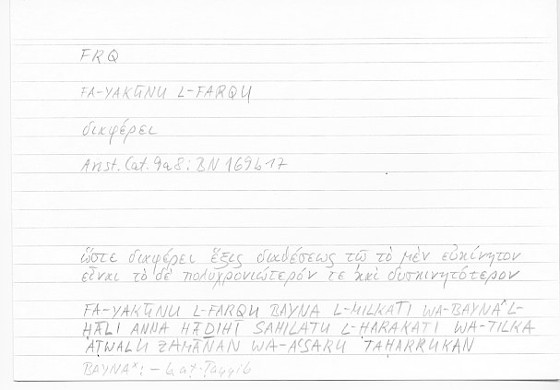 FRQ
FA-YAKŪNU L-FARQU
διαφέρει
Arist. Cat. 9a8; BN 169b17
ὥστε διαφέρει ἕξις διαθέσεως τῷ τὸ μὲν εὐκίνητον
εἶναι τὸ δὲ πολυχρονιώτερόν τε καὶ δυσκινητότερον
FA-YAKŪNU L-FARQU BAYNA L-MILKATI WA-BAYNAˣ L-
ḤĀLI ANNA HĀḎIHĪ SAHILATU L-ḤARAKATI WA-TILKA
AṬWALU ZAMĀNAN WA-AʿSARU TAḤARRUKAN
BAYNAˣ: – b. aṭ-Ṭayyib